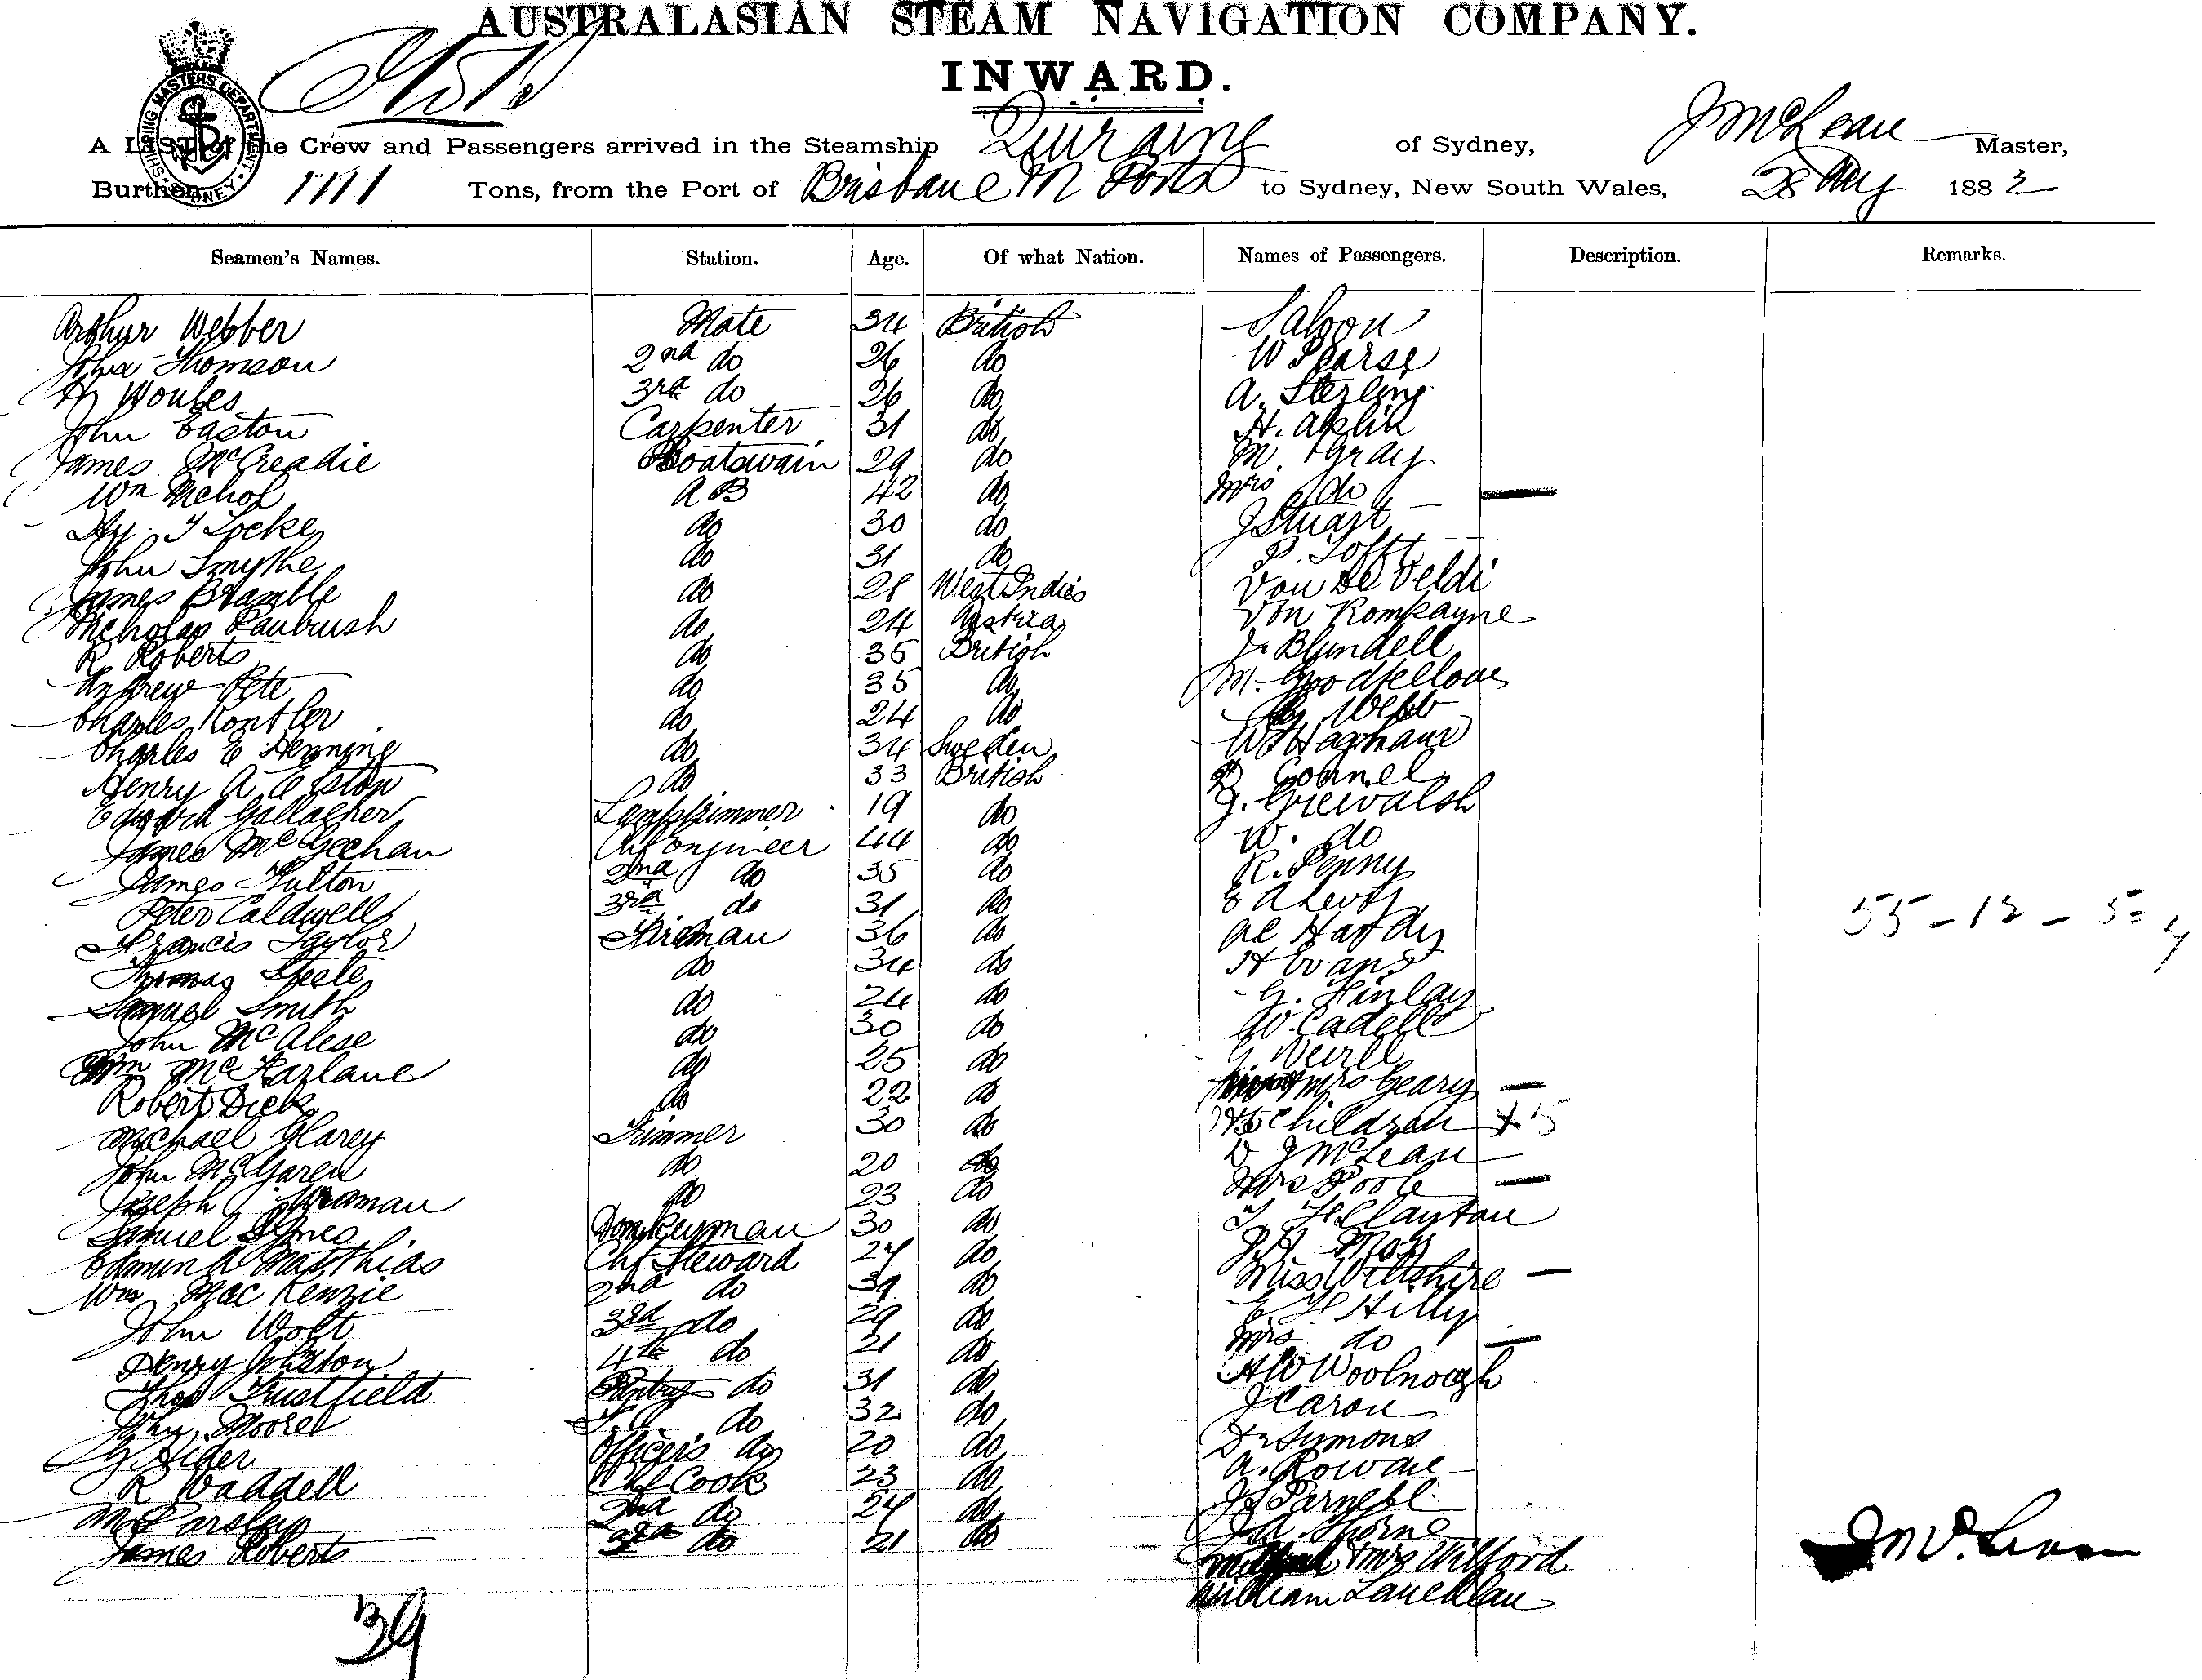 AUSTRALASIAN STEAM NAVIGATION COMPANY.
INWARD.
SHIPPING MASTERS DEPARTMENT SYDNEY
A LIST of the Crew and Passengers arrived in the Steamship Quiraing of Sydney, J McLean Master,
Burthen 1111 Tons, from the Port of Brisbane M Ports to Sydney, New South Wales, 28 May 1882
Seamen's Names. Station. Age. Of what Nation. Names of Passengers. Description. Remarks.
Arthur Webber Mate 34 British Saloon
John Thomson 2nd do 26 do W Pearse
H Woules 3rd do 26 do A. Sterling
John Easton Carpenter 31 do H.
James McCreadie Boatswain 29 do M. Gray
Wm Nichol A B 42 do Mrs do
Hy. T Locke do 30 do J Stuart
John Smythe do 31 do P. Tofft
James Bramble do 28 West Indies Von De Veldi
Nicholas do 24 Austria Von Rompayne
R. Roberts do 36 British J. Blundell
Andrew Pete do 35 do M. Goodfellow
Charles do 24 do Webb
Charles E Henning do 34 Sweden W Hagman
Henry A Elston do 33 British Cornel
Edward Gallagher Lamptrimmer 19 do J.
James McGeehan Chf Engineer 44 do W. do
James Fulton 2nd do 35 do R. Penny
Peter Caldwell 3rd do 31 do E A Levy
Francis Taylor Fireman 36 do Hardy
55-12-5=4
Thomas Steele do 34 do H Evans
Samuel Smith do 24 do G. Finlay
John McAlese do 30 do W. Cadell
Wm McFarlane do 25 do
Robert Dick do 22 do Mrs Geary
Michael Glarey Trimmer 30 do 5 Children X 5
John McGaren do 20 do D J McLean
Joseph do 23 do Mrs Poole
Samuel Donkeyman 30 do Clayton
Edmund Matthias Chf Steward 27 do
Wm MacKenzie 2nd do 39 do Miss Wiltshire
John Wolt 3rd do 29 do E F Hilly
Henry Johnston 4th do 21 do Mrs do
Thos Trustfield Pantry do 31 do A W Woolnough
Moore do 32 do J Caron
G Alder Officers do 20 do Dr Symons
R Waddell Chf Cook 23 do A. Rowane
M Parsley 2nd do 27 do
James Roberts 3rd do 21 do Thorne
Mrs Wilford
William
J McLean
39